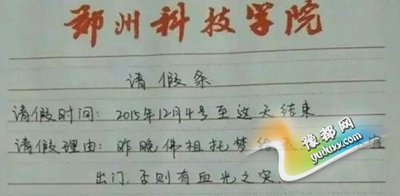 郑州科技学院
请假条
请假时间：2015年12月4号至这天结束
请假理由：昨晚佛祖托梦给
出门，否则有血光之灾
豫都网
yuduxx.com